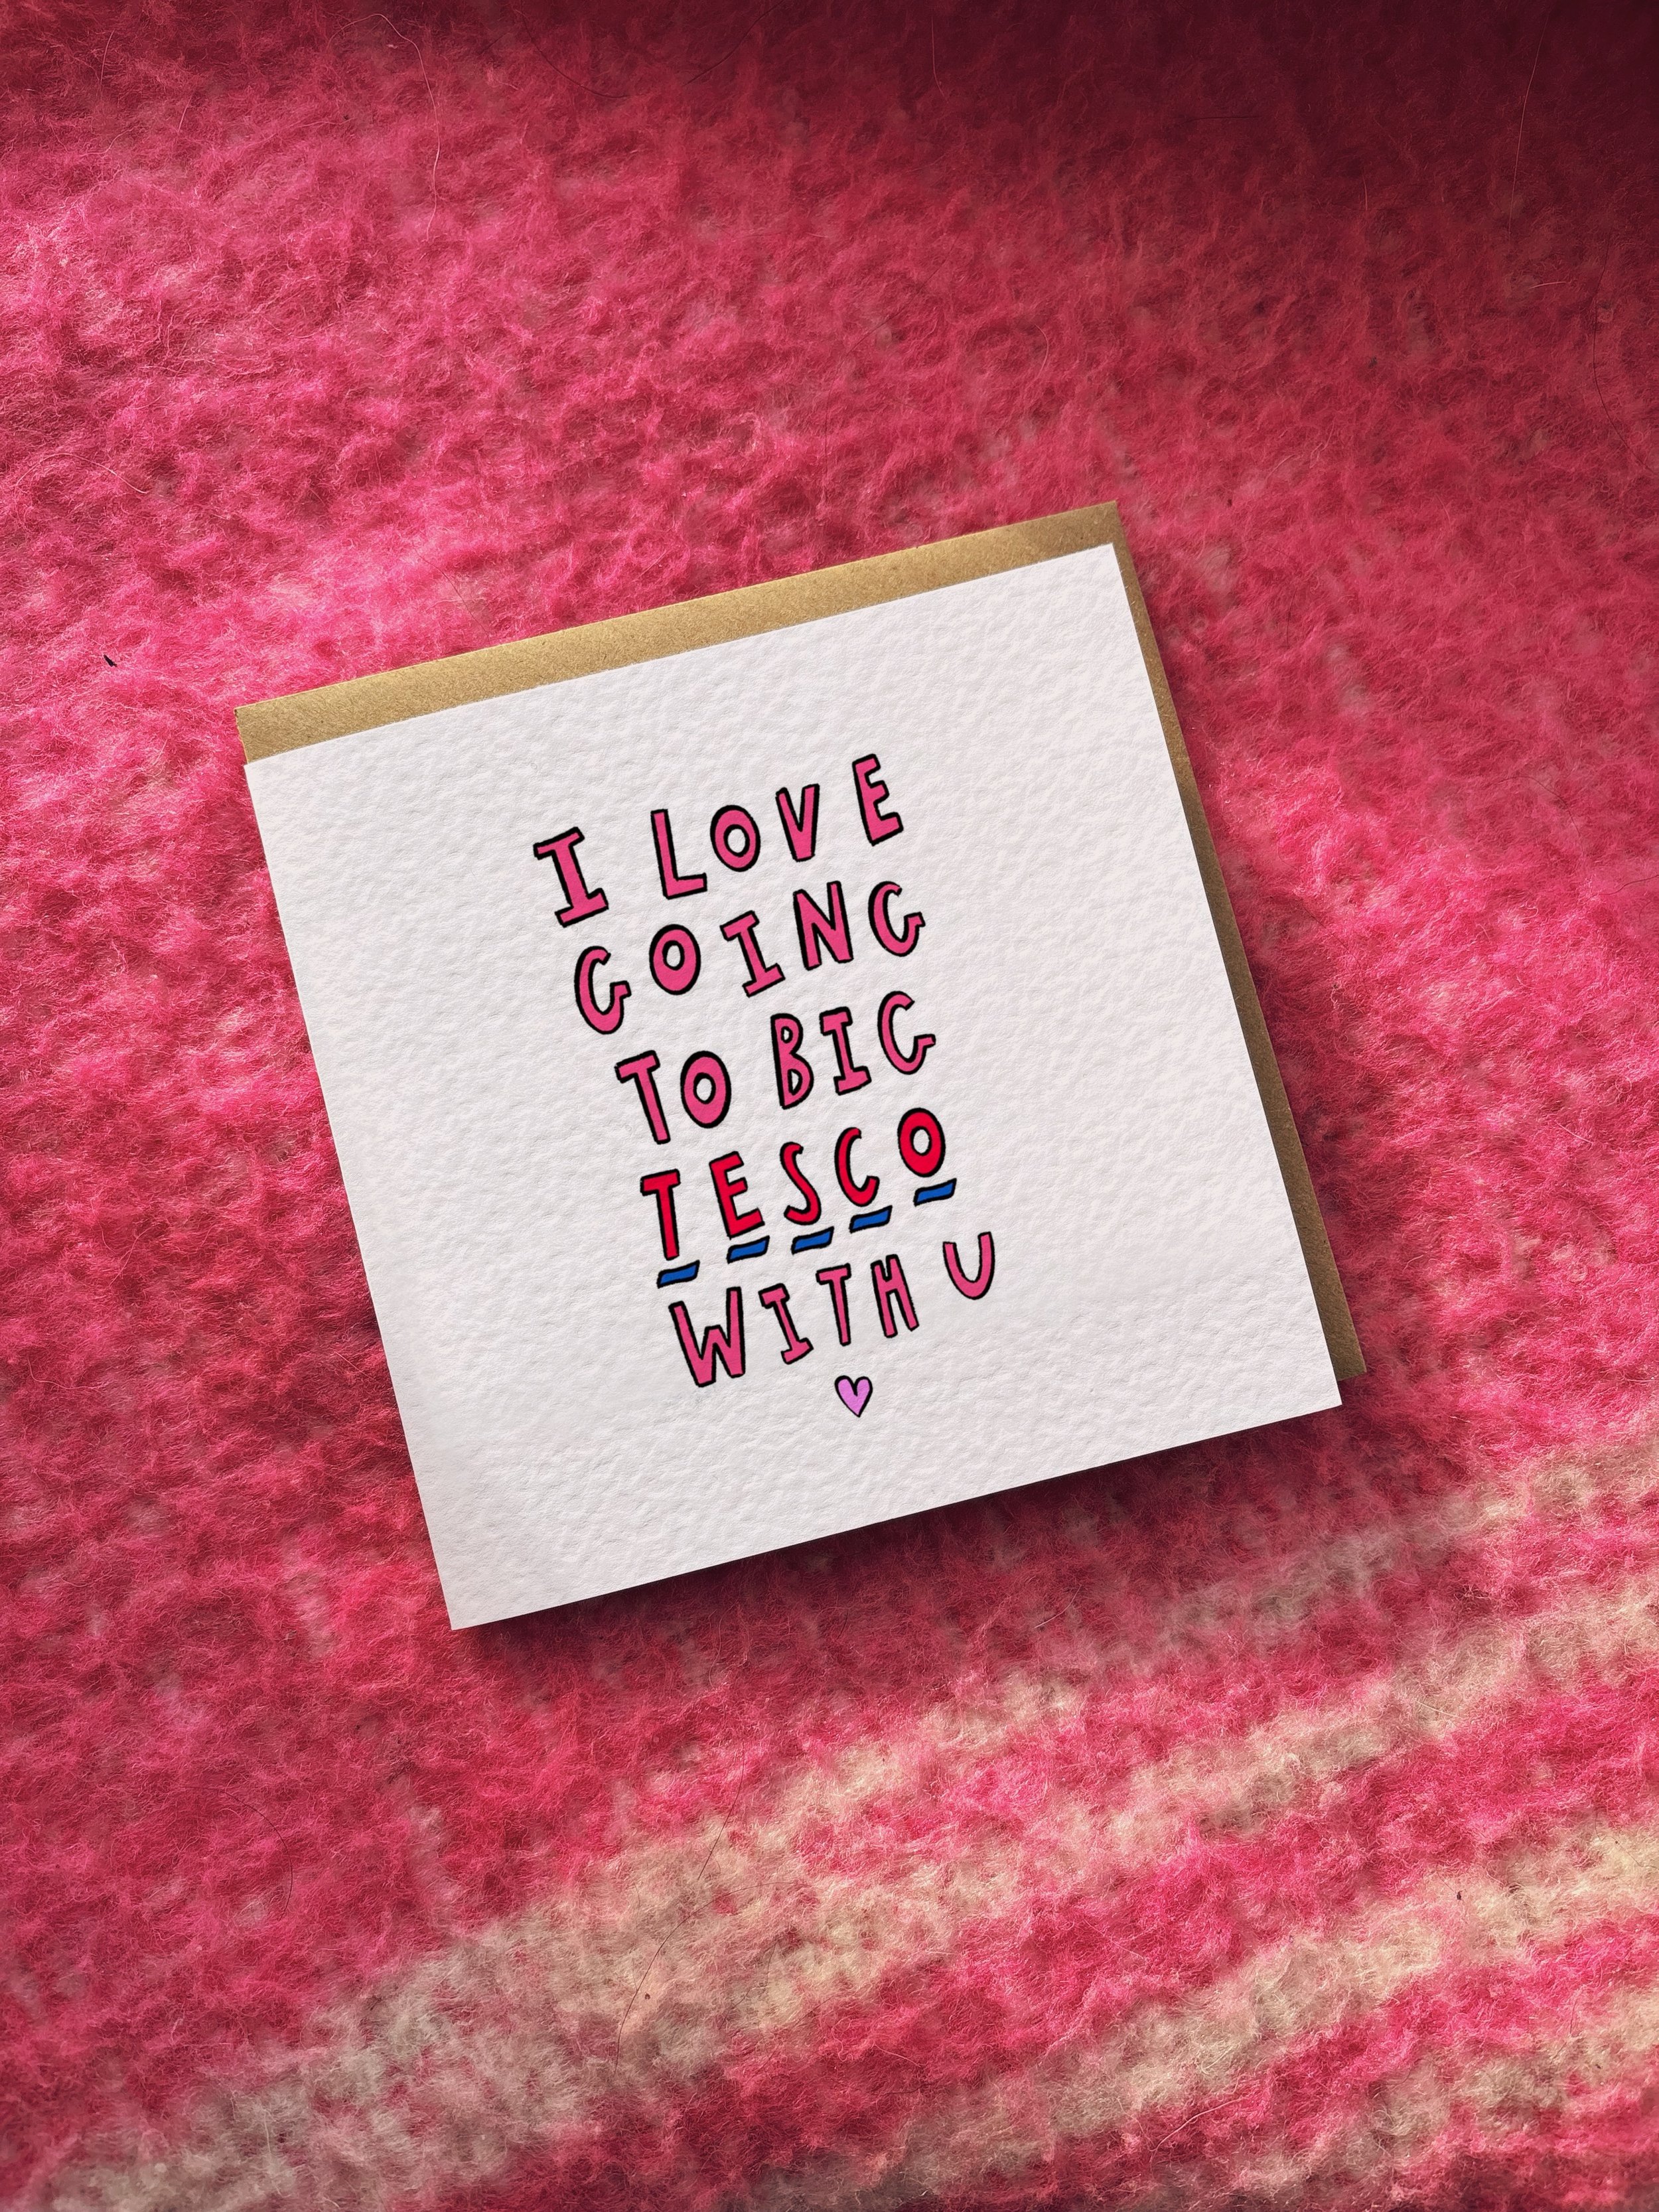 I LOVE
GOING
TO BIG
TESCO
WITH U